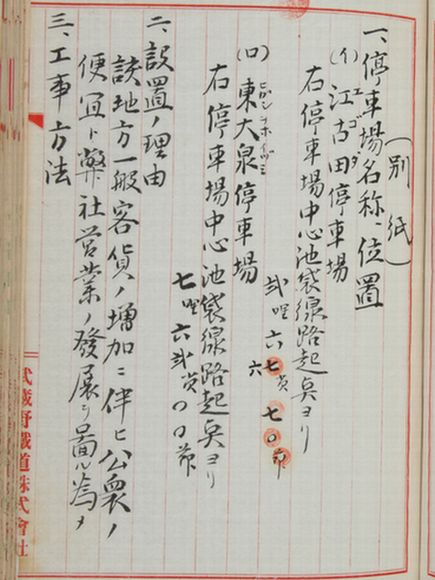 (別紙)
一、停車場名称、位置
(イ)江古田停車場
エゴタ
右停車場中心池袋線路起点ヨリ
弐哩六七鎖七〇節
六
(ロ)東大泉停車場
ヒガシオホイヅミ
右停車場中心池袋線路起点ヨリ
七哩六弐鎖〇〇節
二、設置ノ理由
該地方一般客貨ノ増加ニ伴ヒ公衆ノ
便宜ト弊社営業ノ發展ヲ圖ル為メ
三、工事方法
武藏野鐵道株式會社